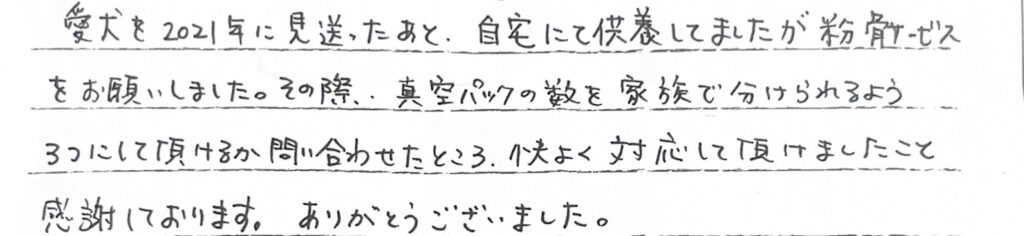 愛犬を2021年に見送ったあと、自宅にて供養してましたが粉骨サービス
をお願いしました。その際、真空パックの数を家族で分けられるよう
3つにして頂けるか問い合わせたところ、快よく対応して頂けましたこと
感謝しております。ありがとうございました。